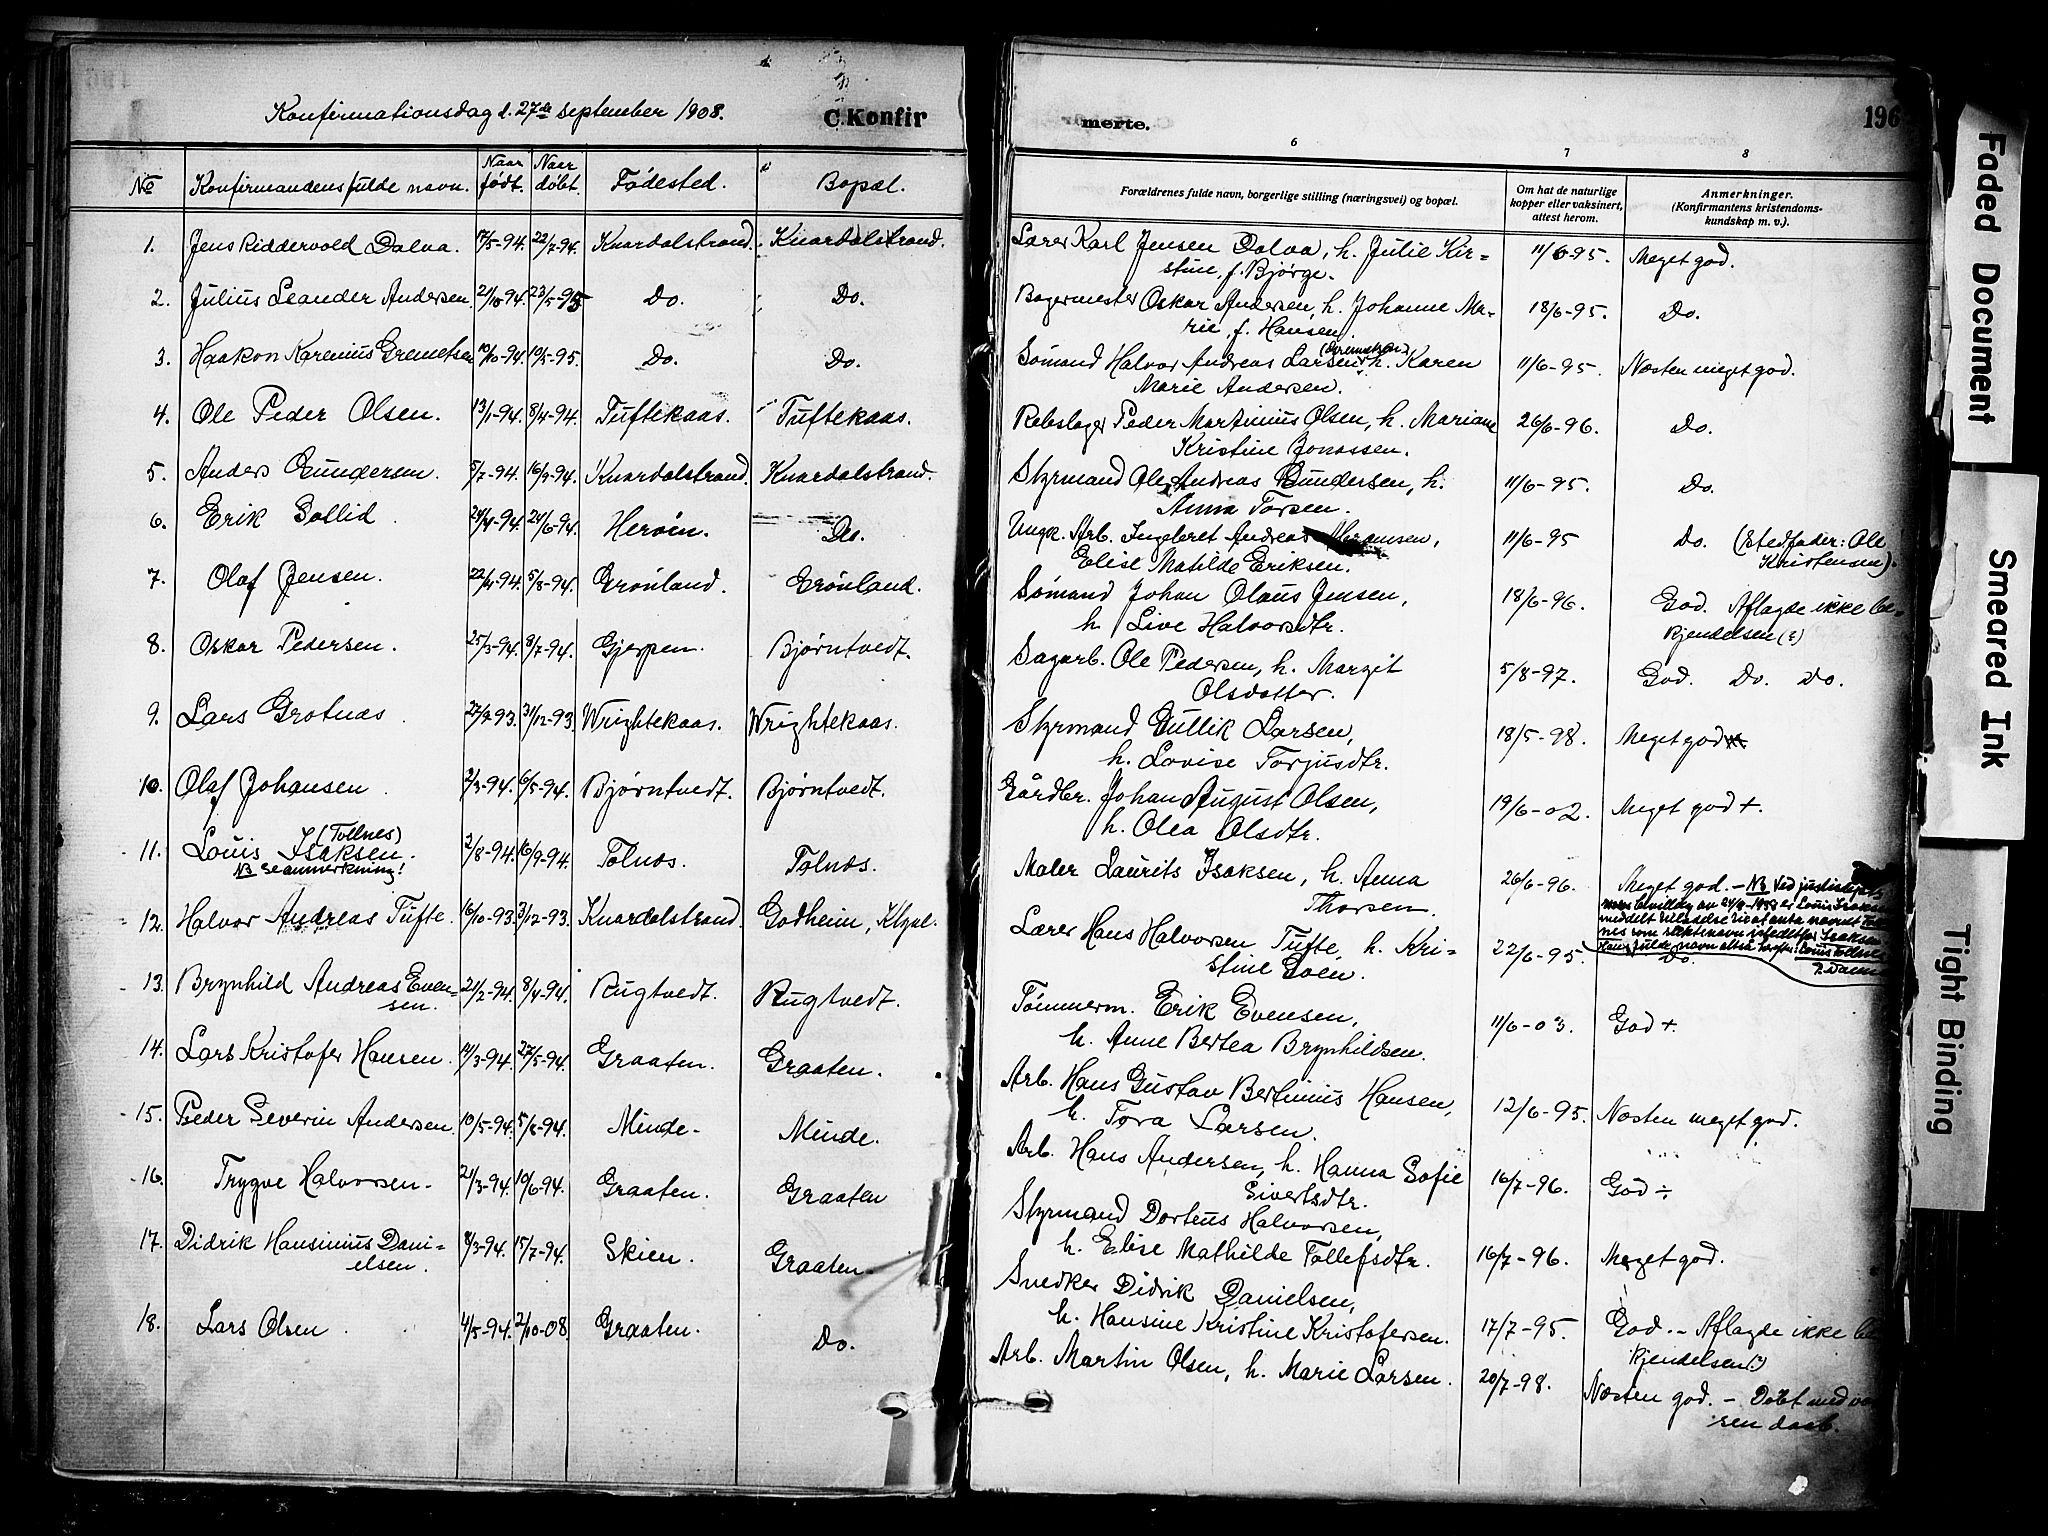 Konfirmationsdag d. 27de september 1908.
C. Konfir
merte.
196
№ Konfirmandens fulde navn. Naar født. Naar døbt. Fødested. Bopæl.
6 7 8
Forældrenes fulde navn, borgerlige stilling (næringsvei) og bopæl.
Om hat de naturlige kopper eller vaksinert, attest herom.
Anmerkninger. (Konfirmantens kristendomskundskap m. v.).
1. Jens Riddervold Dalva. 17/5-94. 22/7-94. Knardalstrand. Knardalstrand.
Lærer Karl Jensen Dalva, h. Julie Kir=
stine, f. Bjørge.
11/6-95. Meget god.
2. Julius Leander Andersen. 2/10-94. 23/5-95 Do. Do.
Bagermester Oskar Andersen, h. Johanne Ma-
rie, f. Hansen.
18/6-95. Do.
3. Haakon Karenius Gremetsen 10/10-94. 19/5-95. Do. Do.
Sømand Halvor Andreas Larsen, h. Karen
Marie Andersen.
11/6-95. Næsten meget god.
4. Ole Peder Olsen. 13/1-94. 8/4-94. Tuftekaas. Tuftekaas.
Rebslager Peder Martinius Olsen, h. Mariane
Kristine Jonassen.
26/6-96. Do.
5. Anders Gundersen. 5/7-94. 16/9-94. Knardalstrand. Knardalstrand.
Styrmand Ole Andreas Gundersen, h.
Anna Torsen.
11/6-95. Do.
6. Erik Sollid. 24/4-94. 24/6-94. Herøen. Do.
Ungk. Arb. Ingebret Andreas Abramsen,
Elise Matilde Eriksen.
11/6-95 Do. (Stedfader: Ole
Kristensen).
7. Olaf Jensen. 22/4-94. 5/8-94. Grønland. Grønland.
Sømand Johan Olaus Jensen,
h. Live Halvorsdtr.
18/6-96. God. Aflagde ikke be-
kjendelsen (?)
8. Oskar Pedersen. 25/3-94. 8/7-94. Gjerpen. Bjørntvedt.
Sagarb. Ole Pedersen, h. Margit
Olsdatter.
5/8-97. God. Do. Do.
9. Lars Grotnæs. 27/9-93. 31/12-93 Wrightekaas. Wrightekaas.
Styrmand Gullik Larsen,
h. Lovise Torjusdtr.
18/5-98. Meget god
10. Olaf Johansen. 2/3-94. 6/5-94. Bjørntvedt. Bjørntvedt.
Gårdbr. Johan August Olsen,
h. Olea Olsdtr.
19/6-02. Meget god +.
11. Louis Isaksen. (Tollnes) 2/8-94. 16/9-94. Tolnæs. Tolnæs.
NB se anmerkning!
Maler Laurits Isaksen, h. Anna
Thorsen.
26/6-96. Meget god. - NB Ved justisdepte-
bevilling av 24/4-1953 er Louis Isaksen
meddelt tilladelse til at anta navnet Toll-
nes som slektsnavn istedetfor Isaksen.
Hans fulde navn altså herefter: Louis Tollnes
12. Halvor Andreas Tufte. 16/10-93. 3/12-93. Knardalstrand. Godheim,
Lærer Hans Halvorsen Tufte, h. Kri-
stine Goen.
22/6-95. Do.
13. Brynhild Andreas Even=
sen. 21/2-94. 8/4-94. Rugtvedt. Rugtvedt.
Tømmerm. Erik Evensen,
h. Anne Bertea Brynhildsen.
11/6-03. God +.
14. Lars Kristofer Hansen. 14/3-94. 27/5-94. Graaten. Graaten.
Arb. Hans Gustav Bertinius Hansen,
h. Tora Larsen.
12/6-95. Næsten meget god.
15. Peder Severin Andersen. 10/5-94. 5/8-94. Minde. Minde.
Arb. Hans Andersen, h. Hanna Sofie
Sivertsdtr.
16/7-96. God ÷
16. Trygve Halvorsen. 21/3-94. 10/6-94. Graaten. Graaten
Styrmand Dorteus Halvorsen,
h. Elise Mathilde Tollefsdtr.
16/7-96. Meget god.
17. Didrik Hansinius Dani=
elsen. 8/3-94. 15/7-94. Skien. Graaten
Snedker Didrik Danielsen,
h. Hansine Kristine Kristofersen.
17/7-95. God. - Aflagde ikke be
kjendelsen(?)
18. Lars Olsen. 4/5-94. 2/10-08 Graaten. Do.
Arb. Martin Olsen, h. Marie Larsen.
20/7-98. Næsten god. - Døbt med vok
sen daab.
Faded Document
Smeared Ink
Tight Binding